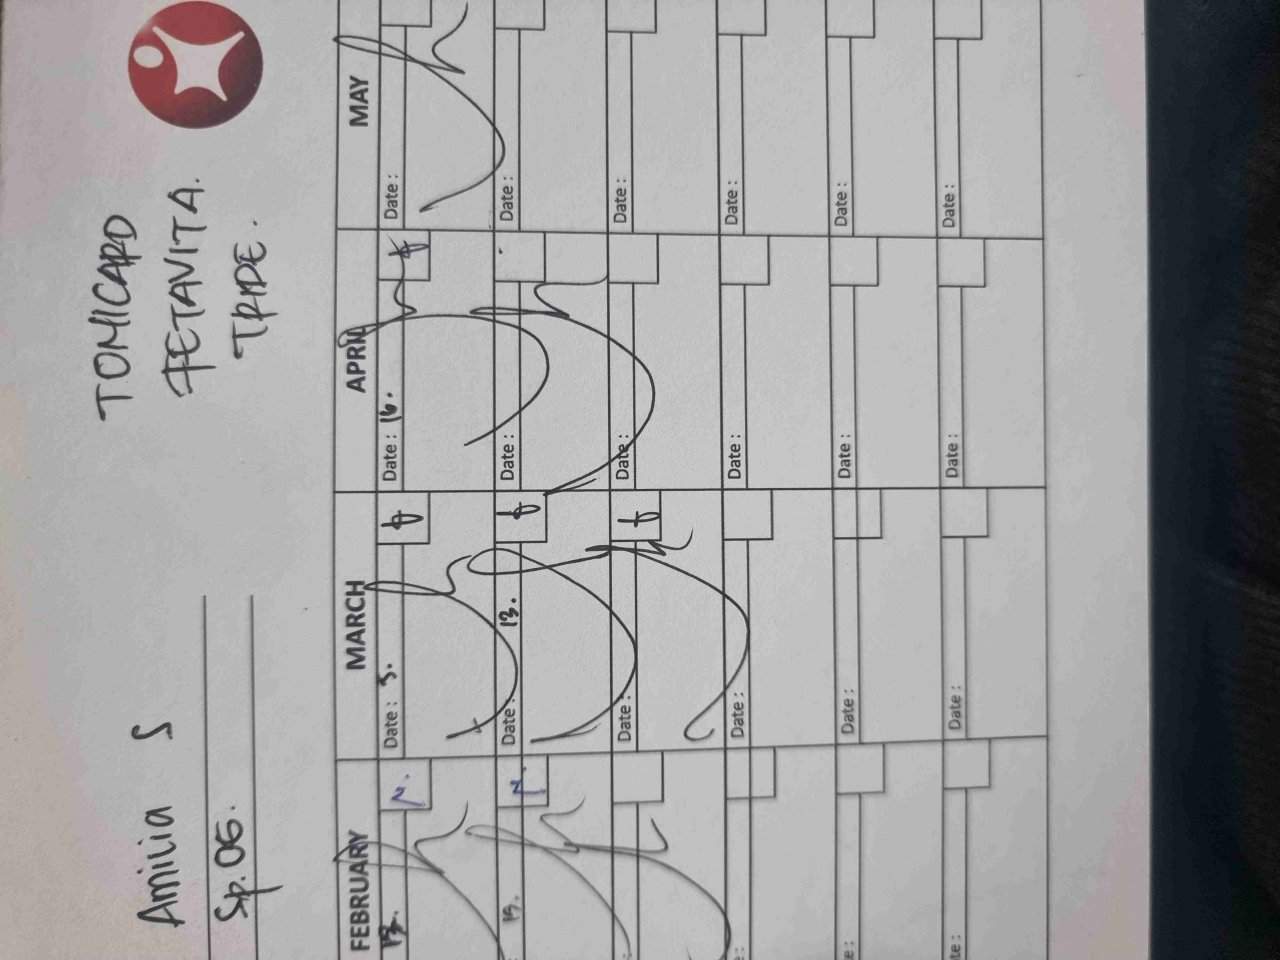 Amilia S
Sp. 05.
TOMICARD
FETAVITA.
TRIDE.
FEBRUARY MARCH APRIL MAY
13. Date: 3. Date: 16. Date:
Date: 13. Date: Date:
Date: Date: Date:
Date: Date: Date:
Date: Date: Date:
Date: Date: Date: